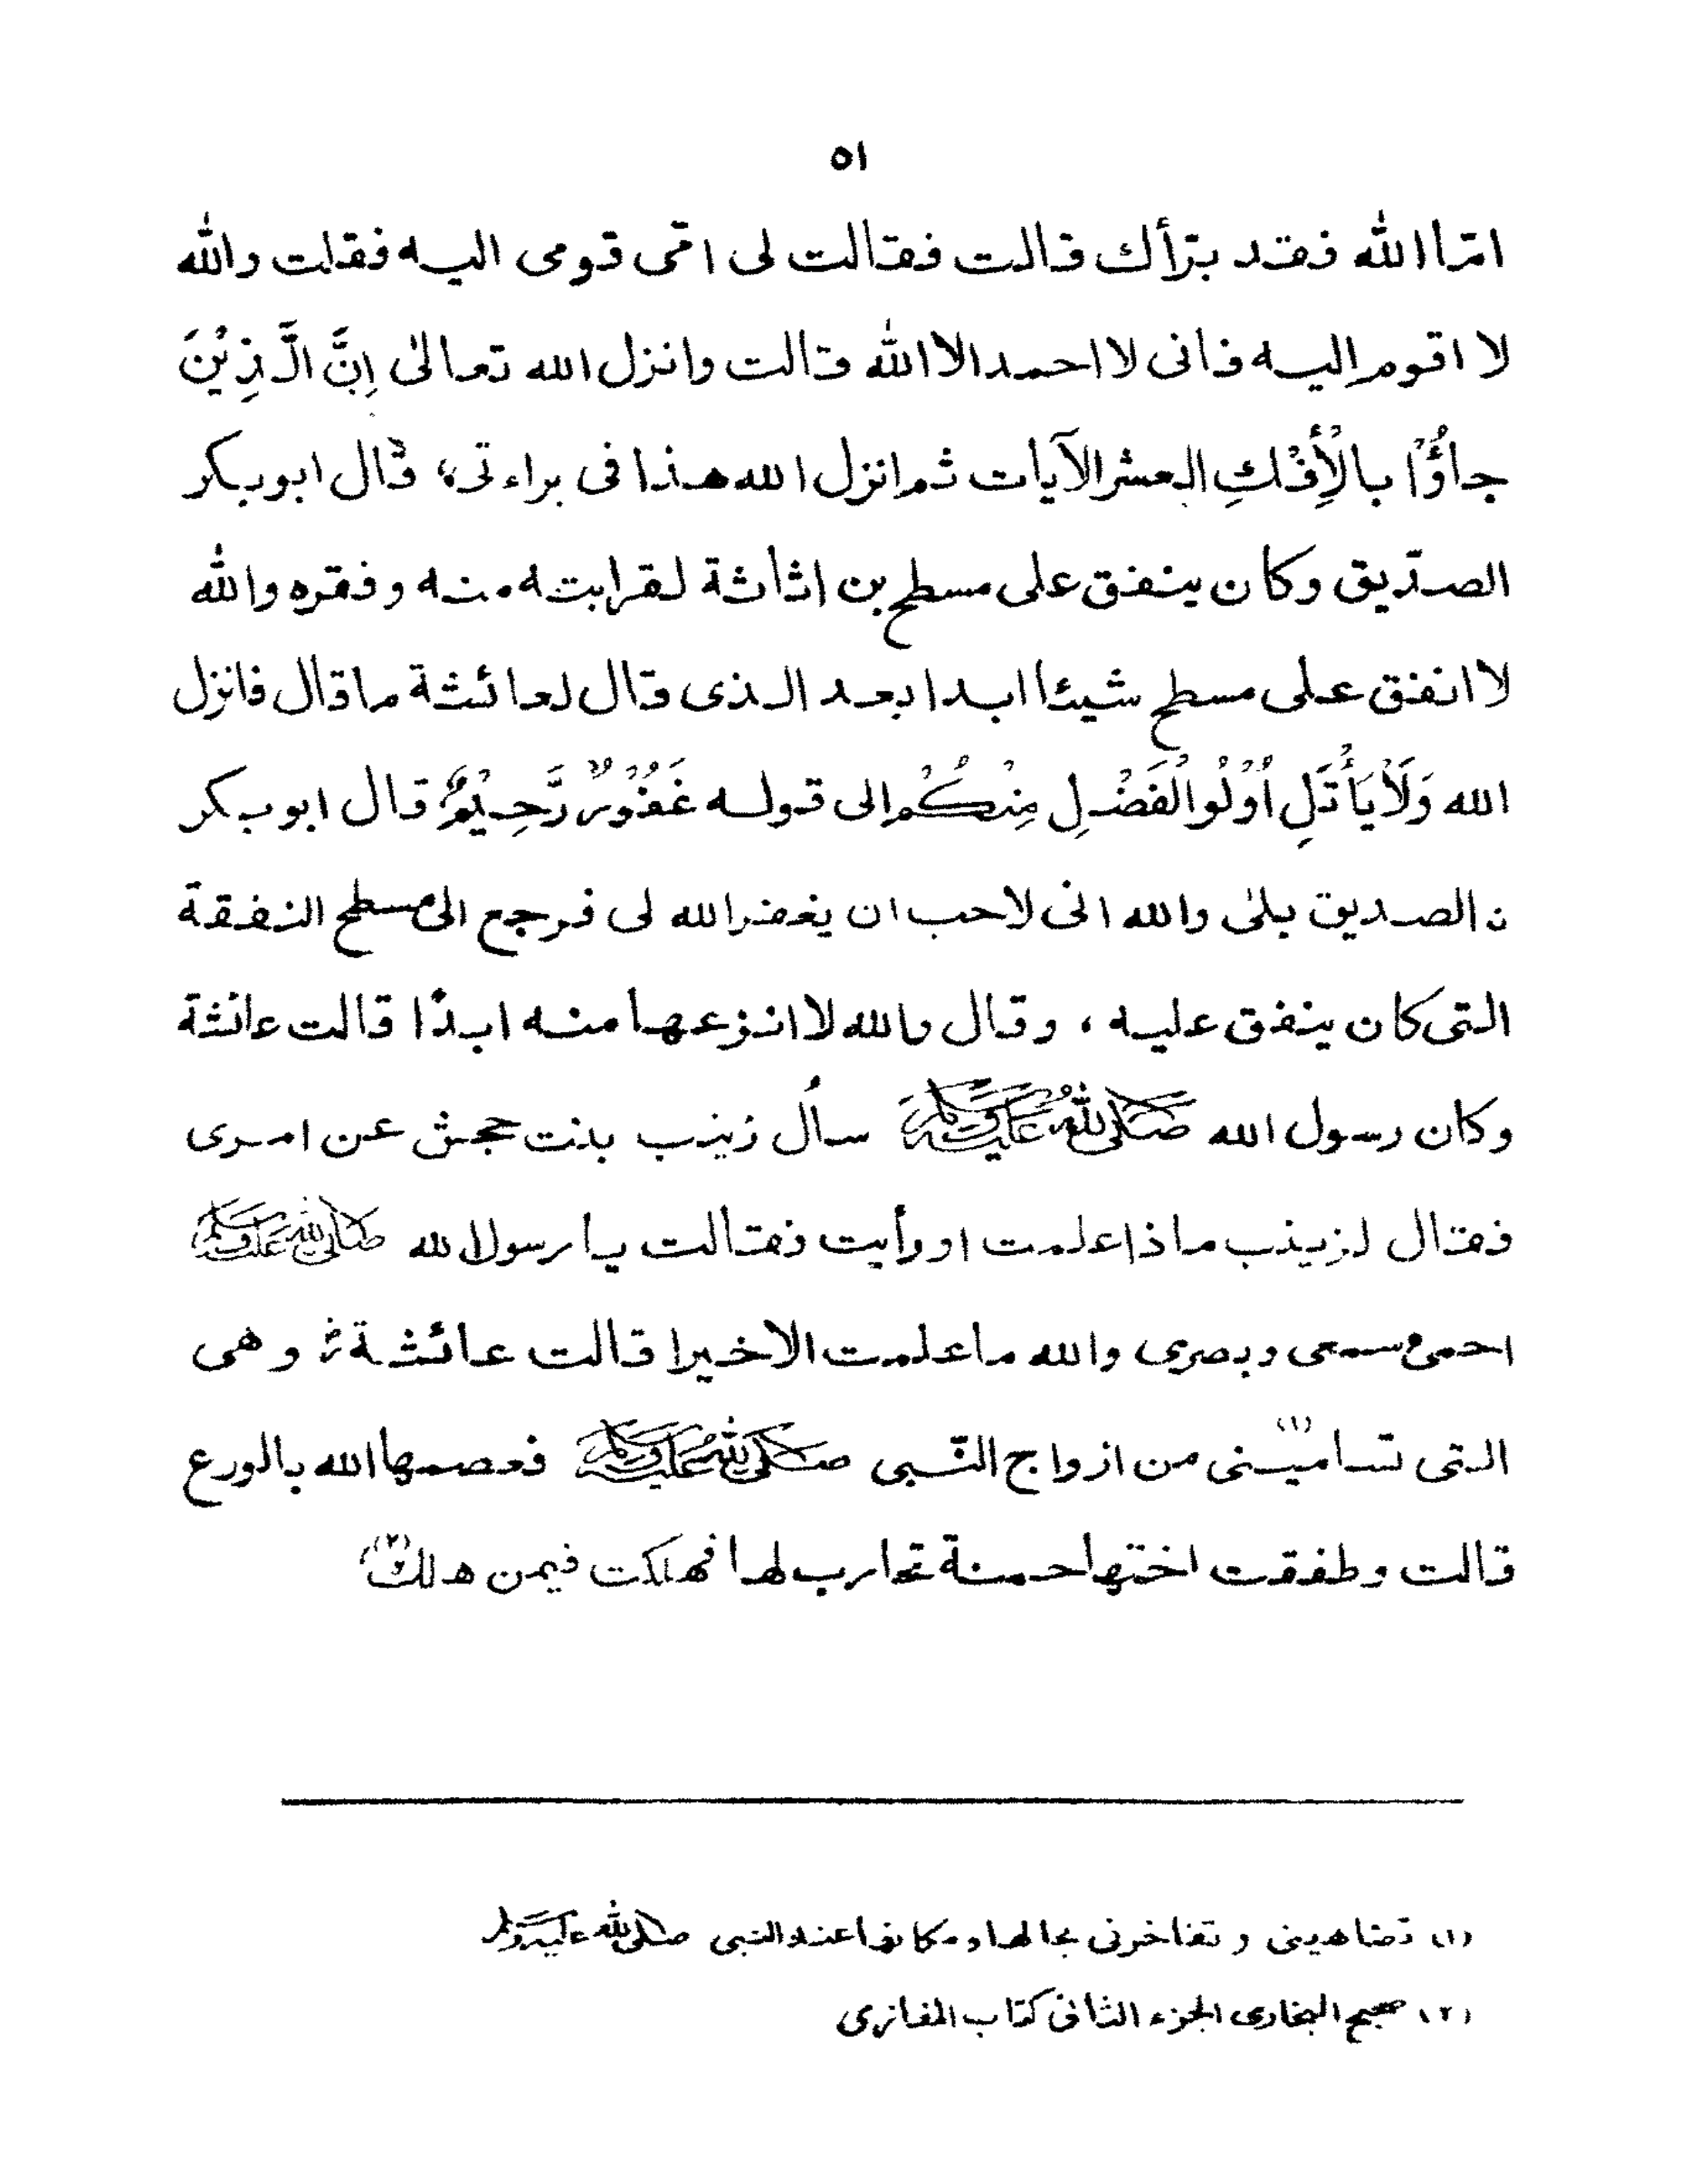 ٥١
امّا الله فقد برّأك قالت فقالت لى امّى قومى اليه فقلت والله
لا اقوم اليه فانى لا احمد الا الله قالت وانزل الله تعالىٰ اِنَّ الَّذِيْنَ
جاؤُا بالْاِفْكِ العشر الآيات ثم انزل الله هذا فى براءتى، قال ابوبكر
الصدّيق وكان ينفق على مسطح بن اثاثة لقرابته منه وفقره والله
لا انفق على مسطح شيئا ابدا بعد الذى قال لعائشة ما قال فانزل
الله وَلَا يَأْتَلِ اُولُوا الْفَضْلِ مِنْكُمْ الى قوله غَفُوْرٌ رَّحِيْمٌ قال ابوبكر
ن الصديق بلىٰ والله انى لاحب ان يغفر الله لى فرجع الى مسطح النفقة
التى كان ينفق عليه، وقال والله لا انزعها منه ابدًا قالت عائشة
وكان رسول الله صلى الله عليه وسلم سأل زينب بنت جحش عن امرى
فقال لزينب ماذا علمت او رأيت فقالت يا رسول الله صلى الله عليه وسلم
احمى سمعى وبصرى والله ما علمت الا خيرا قالت عائشة رض وهى
التى تسامينى (١) من ازواج النّبى صلى الله عليه وسلم فعصمها الله بالورع
قالت وطفقت اختها حمنة تحارب لها فهلكت فيمن هلك (٢)
(١) تضاهينى و تفاخرنى بجالها ومكانها عند النبى صلى الله عليه وسلم
(٢) صحيح البخارى الجزء الثانى كتاب المغازى